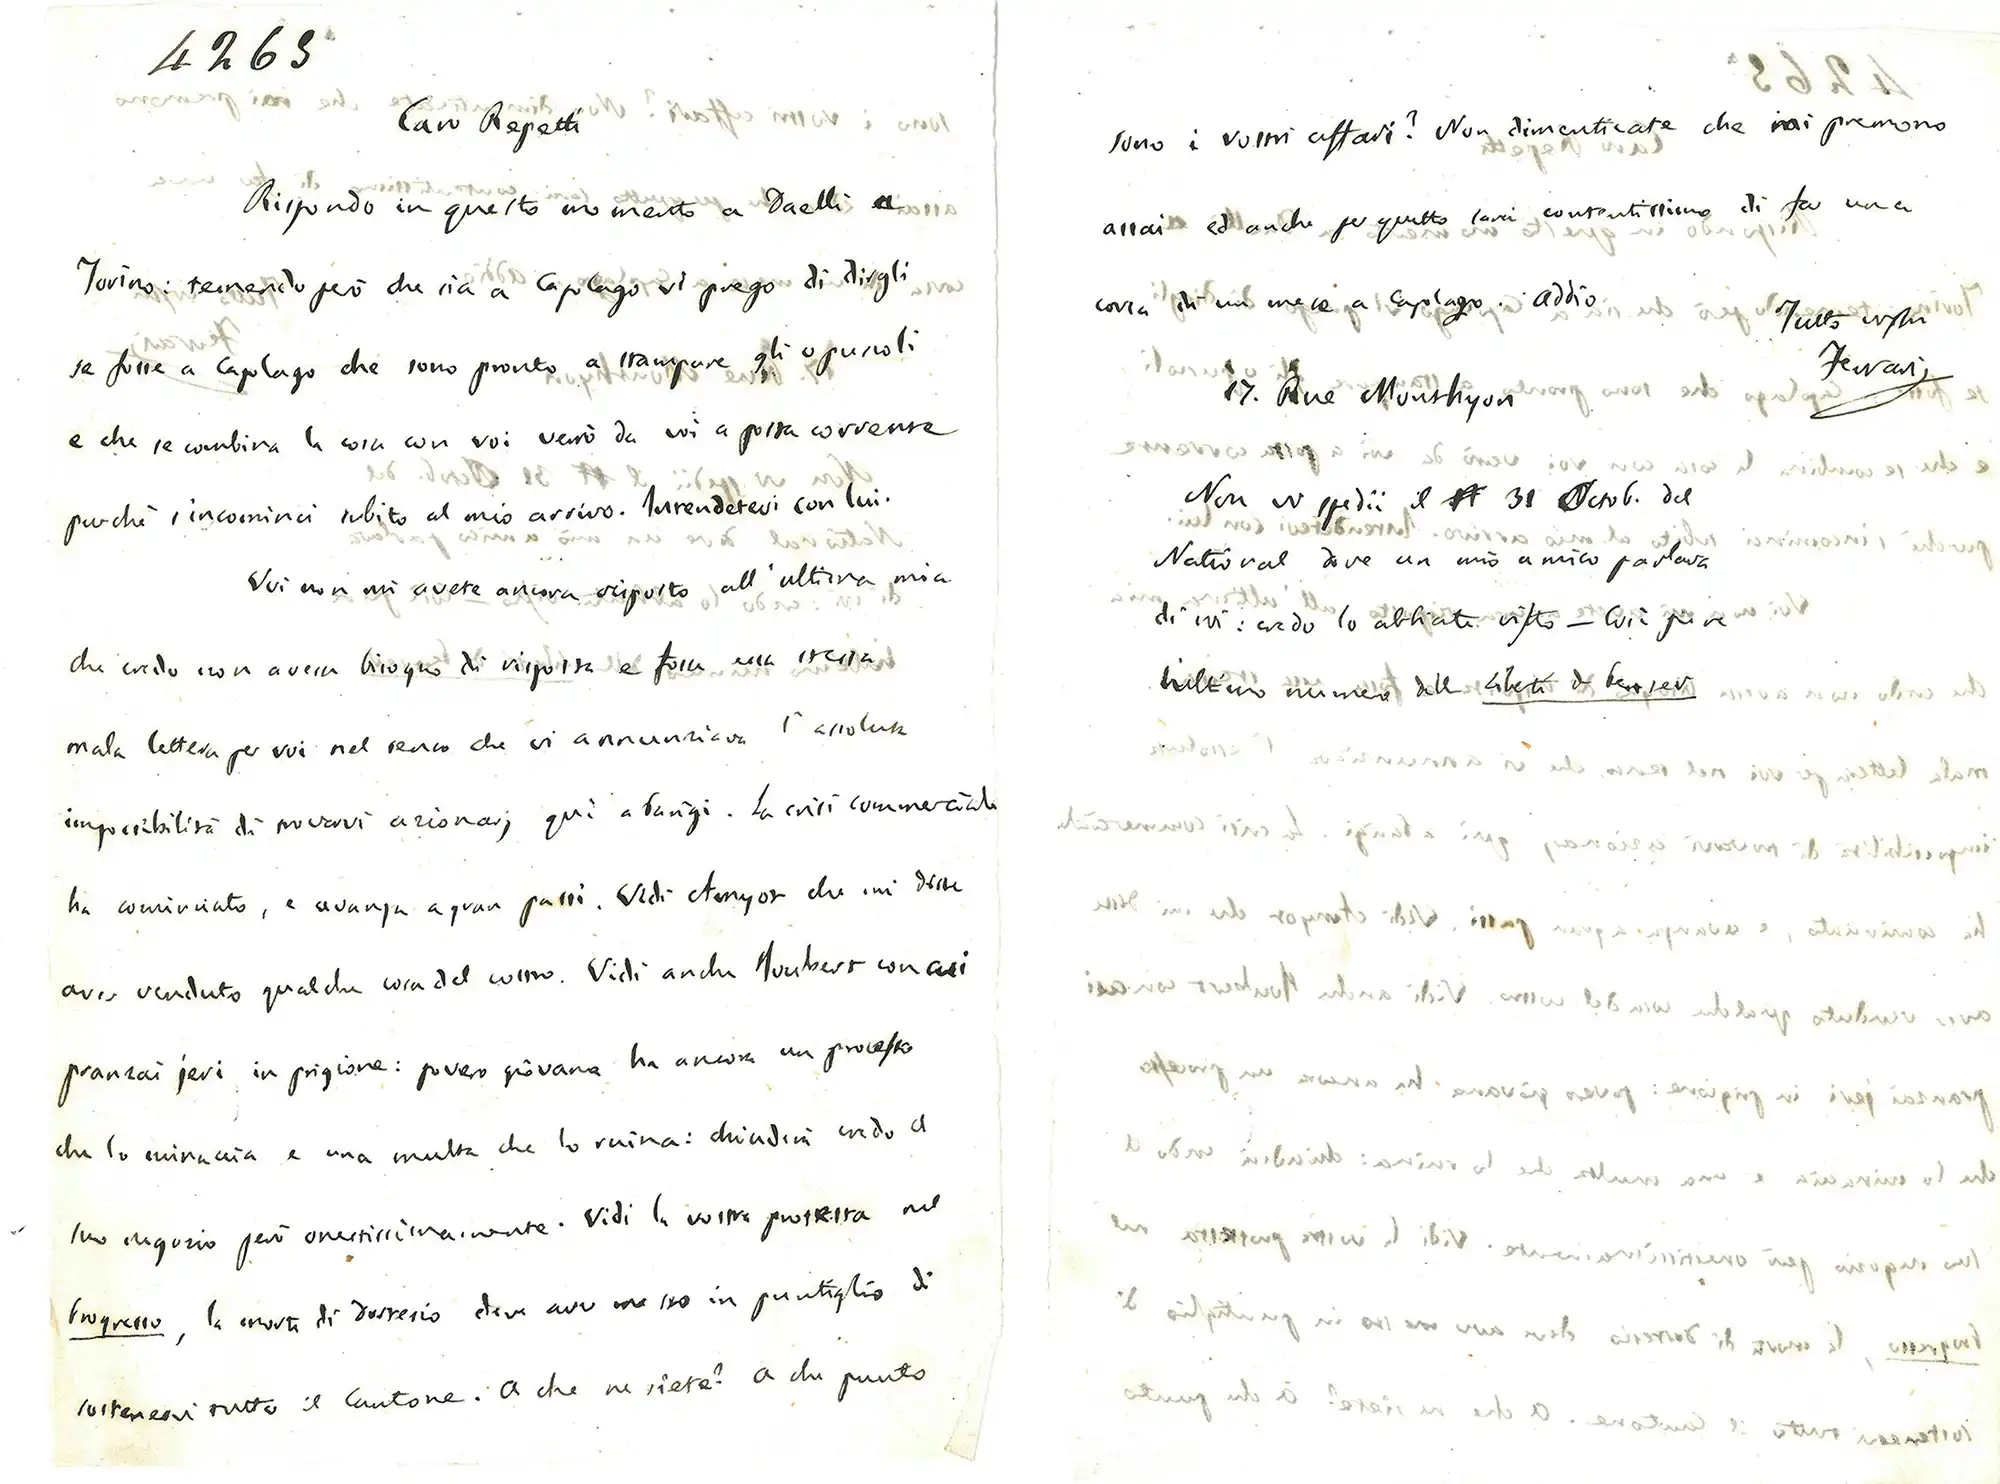 4263
Caro Repetti
Rispondo in questo momento a Daelli a
Torino: temendo però che sia a Capolago vi prego di dirgli
se fosse a Capolago che sono pronto a stampare gli opuscoli
e che se combina la cosa con voi verrò da voi a posta corrente
purché s'incominci subito al mio arrivo. Intendetevi con lui.
Voi non mi avete ancora risposto all'ultima mia
che credo non aveva bisogno di risposta e fosse una stessa
mala lettera per voi nel senso che vi annunziava l'assoluta
impossibilità di trovarvi azionarj quì a Parigi. La crisi commerciale
ha cominciato, e avanza a gran passi. Vidi Amyot che mi disse
aver venduto qualche cosa del vostro. Vidi anche Joubert con cui
pranzai jeri in prigione: povero giovane ha ancora un processo
che lo minaccia e una multa che lo ruina: chiuderà credo il
suo negozio però onestissimamente. Vidi la vostra protesta nel
Progresso, la morte di Dottesio deve aver messo in puntiglio di
sostenervi tutto il Cantone. A che ne siete? A che punto
sono i vostri affari? Non dimenticate che mi premono
assai ed anche per questo sarei contentissimo di far una
corsa di un mese a Capolago. Addio
Tutto vostro
Ferrarj
17. Rue Monthyon
Non vi spedii il 31 Octob. del
National dove un mio amico parlava
di voi: credo lo abbiate visto – Così pure
l'ultimo numero della Liberté de Penser